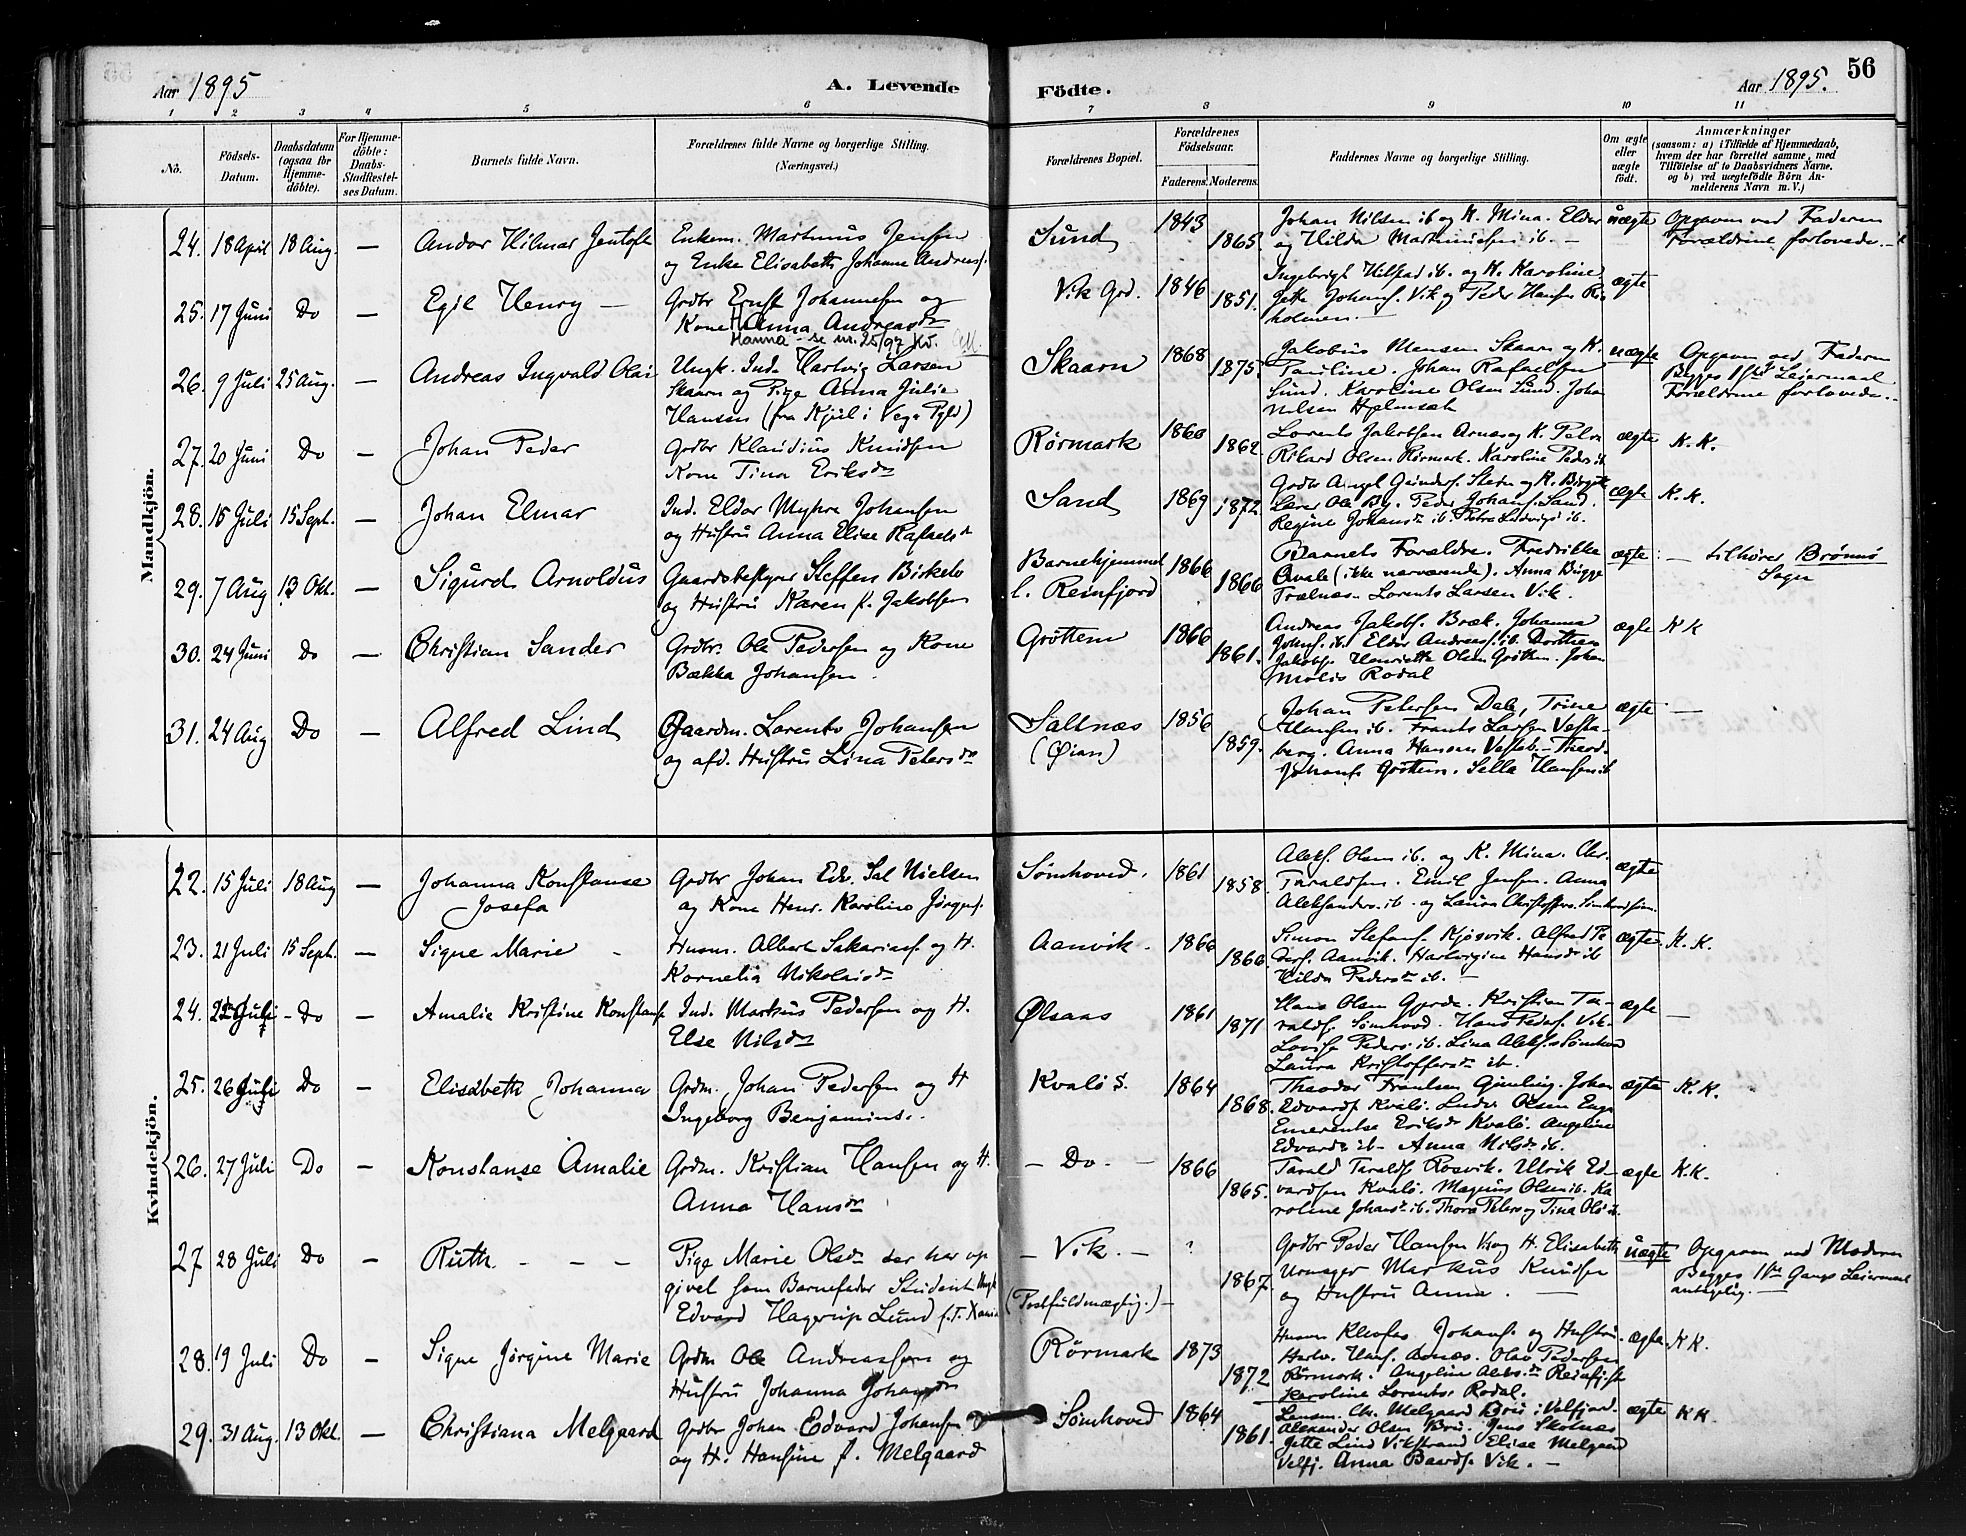 Aar 1895
A. Levende
Födte.
Aar 1895.
56
1 2 3 4 5 6 7 8 9 10 11
No.
Födsels-
Datum.
Daabsdatum
(ogsaa for
Hjemme-
döbte).
For Hjemme-
döbte:
Daabs-
Stadfæstel-
ses Datum.
Barnets fulde Navn.
Forældrenes fulde Navne og borgerlige Stilling.
(Næringsvei.)
Forældrenes Bopæl.
Forældrenes
Födselsaar.
Faderens. Moderens.
Faddernes Navne og borgerlige Stilling.
Om ægte
eller
uægte
födt.
Anmærkninger
(saasom: a) i Tilfælde af Hjemmedaab,
hvem der har forrettet samme, med
Tilföielse af to Daabsvidners Navne,
og b) ved uægtefödte Börn An-
melderens Navn m. V.)
Mandkjön.
24. 18 April 18 Aug. — Andor Hilmar Jentoft
Enkem. Martinus Jensen
og Enke Elisabeth Johanna Andreasf.
Sund 1843 1865
Johan Nilsen ib og K. Mina. Eldor
og Hilda Martinusen ib. —
uægte
Opgaven ved Faderen
Forældrene forlovede. —
25. 17 Juni Do — Egil Henry —
Grdbr Ernst Johannesen og
Kone Anna Andreasdr
Hanna - se nr. 25/97 kv.
Vik Grd. 1846 1851.
Ingebrigt Hilstad ib. og K. Karoline
Jette Johans. Vik og Peder Hansen
holmen. —
ægte
26. 9 Juli 25 Aug. — Andreas Ingvald Olai
Ungk. Ind. Hartvig Larsen
Skaarn og Pige Anna Julie
Hansen (fra Kjul i Vega Pgld)
Skaarn 1868 1875.
Jakobus Mensen Skaarn og K.
Pauline. Johan Rafaelsen
Sund. Karoline Olsen Sund. Joha
Nilsen Hjelmsæt
uægte
Opgaven ved Faderen
Begges 1ste Leiermaal
Forældrene forlovede. —
27. 20 Juni Do — Johan Peder
Grdbr Klaudius Knudsen
Kone Tina Eriksdr
Rörmark 1860 1862
Lorents Jakobsen Arnes og K. Petra
Rikard Olsen Rörmark. Karoline Peders ib
ægte K. K.
28. 15 Juli 15 Sept. — Johan Elmar
Ind. Eldor Myhre Johansen
og Hustru Anna Elise Rafaelsdr
Sand 1869 1872
Lærer Ole By. Peder Johans. Sand.
Regine Johansdr ib. Petra Ludvigs ib.
ægte K. K.
29. 7 Aug 13 Okt. — Sigurd Arnoldus
Gaardsbestyrer Steffen Birkelo
og Hustru Karen f. Jakobsen
Barnehjemmet
l. Reinfjord
1866 1866
Barnets Forældre. Fredrikke
Qvale (ikke nærværende). Anna Bugge
Trælnæs. Lorents Larsen Vik.
ægte — tilhører Brönnö
Sogn
30. 24 Juni Do — Christian Sander
Grdbr. Ole Pedersen og Kone
Bækka Johansen.
Gröttem 1866 1861.
Andreas Jakobs. Bræk. Johanna
Johns. ib. Eldor Andreass. ib. Dorthea
Jakobs. Henriette Olsen Gröttem. Johan
Molis Rodal
ægte K K
31. 24 Aug Do — Alfred Lind
Gaardm. Lorents Johansen
og afd. Hustru Lina Petersdr
Saltnæs
(Öian)
1856 1859.
Johan Petersen Dale, Trine
Hansen ib. Frants Larsen Vesta-
berg. Anna Hansen Vestab.
Johans Gröttem. Sella Hansen ib
ægte —
Kvindekjön.
22. 15 Juli 18 Aug — Johanna Konstanse
Josefa
Grdbr Johan Edv. Sal Nielsen
og Kone Henr. Karoline Jörgens.
Sömhoved. 1861 1858.
Aleks. Olsen ib. og K. Mina. Chr.
Taraldsen. Emil Jensen. Anna
Aleksanders. ib. og Laura Christoffers. Sömhovd
ægte
23. 21 Juli 15 Sept. — Signe Marie
Husm. Albert Sakarias. og H.
Kornelia Nikolaisdr
Aanvik. 1866 1866.
Simon Stefans. Kjösvik. Alfred Pe
ders. Aanvik. Hartvigine Hansdr ib
Hilda Pedersdr ib. —
ægte K. K.
24. Juli - Do — Amalie Kristine Konstanse
Ind. Markus Pedersen og H.
Else Nilsdr
Ölsaas 1861 1871
Hans Olsen Gjerde. Kristian Ta-
ralds. Sömhovd. Hans Peders. Vik.
Lovise Peders. ib. Lina Aleks. Sömhov
Laura Kristoffersdr ib.
ægte —
25. 26 Juli Do — Elisabeth Johanna
Grdm. Johan Pedersen og H
Ingeborg Benjamins.
Kvalö S. 1864 1868.
Theodor Frantsen Gimling. Johan
Edvards. Kvalö. Ludv. Olsen
Emerentse Eriksdr Kvalö. Angeline
Edvardsdr ib. Anna Nilsdr ib.
ægte K. K.
26. 27 Juli Do — Konstanse Amalie
Grdm. Kristian Hansen og H.
Anna Hansdr
— Do. — 1866 1865.
Tarald Taralds. Rosvik. Ulrik Ed-
vardsen Kvalö. Magnus Olsen ib. Ka
roline Johansdr ib. Thora Peters og Tina Ols ib.
ægte K.K.
27 28 Juli Do — Ruth. - - -
Pige Marie Olsdr der har op
givet som Barnefader Student Ungk
Edvard Hagerup Lund f. T. Xania
— Vik. —
(Postfuldmægtig.) —
? 1867.
Grdbr Peder Hansen Vik og H. Elisabeth
Urmager Markus Knudsen
og Hustru Anna. —
uægte
Opgaven ved Moderen
Begges 1ste Gangs Leiermaal
antagelig. —
28. 19 Juli Do — Signe Jörgine Marie
Grdm Ole Andreassen og
Hustru Johanna Johansdr
Rörmark 1873 1872
Husm Kleofas Johans. og Hustru
Hartv. Hans. Arnæs. Olav Pedersen
Rörmark. Angeline Aleksdr Reinfj.
Karoline Lorents. Rodal.
ægte K K.
29. 31 Aug. 13 Okt. — Christiana Melgaard
Grdbr Johan Edvard Johansen
og H. Hansine f. Melgaard
Sömhoved 1864 1861.
Lensm. Chr. Melgaard Brö i Velfjord.
Alexander Olsen Brö. Jens Skotnes
Jette Lind Vikstrand Elise Melgaard
Velfj. Anna Baards. Vik. —
ægte K K.